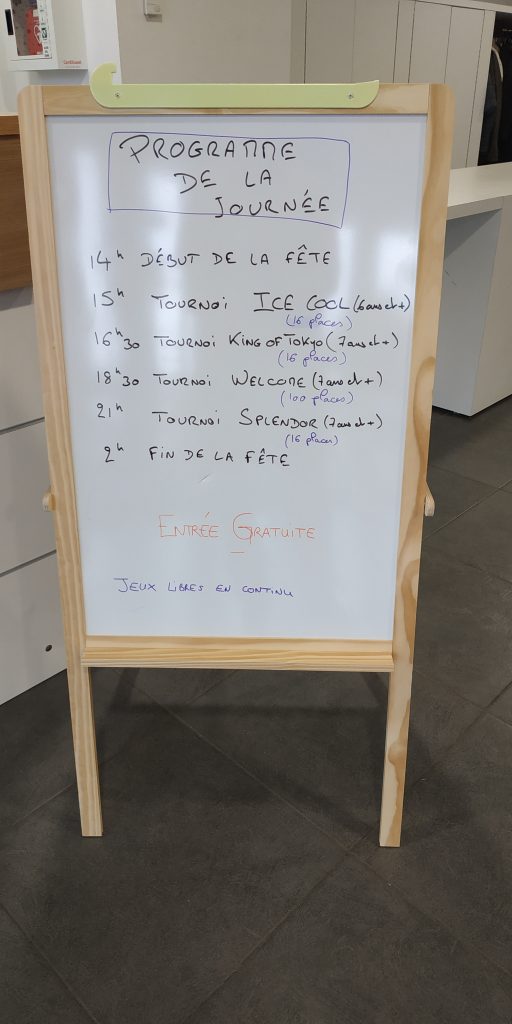 PROGRAMME
DE LA
JOURNÉE
14h DÉBUT DE LA FÊTE
15h TOURNOi ICE COOL (6 ans et +)
(16 places)
16h30 TOURNOi KING OF TOKYO (7 ans et +)
(16 places)
18h30 TOURNOi WELCOME (7 ans et +)
(100 places)
21h TOURNOi SPLENDOR (7 ans et +)
(16 places)
2h FIN DE LA FÊTE
ENTRÉE GRATUITE
JEUX LIBRES EN CONTINU